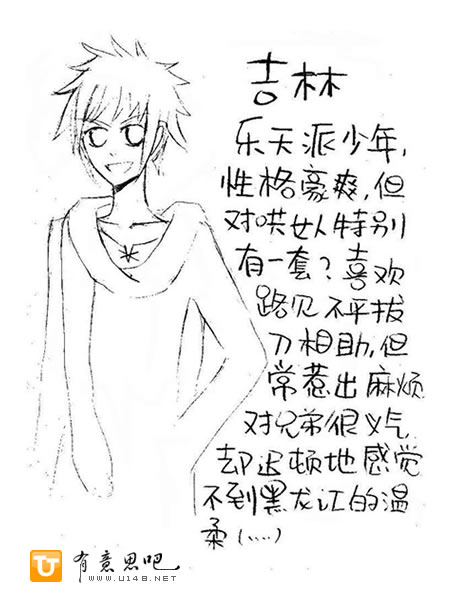 吉林
乐天派少年,
性格豪爽,但
对哄女人特别
有一套?喜欢
路见不平拔
刀相助,但
常惹出麻烦
对兄弟很义气
却迟顿地感觉
不到黑龙江的温
柔(.....)
有意思吧
WWW.U148.NET